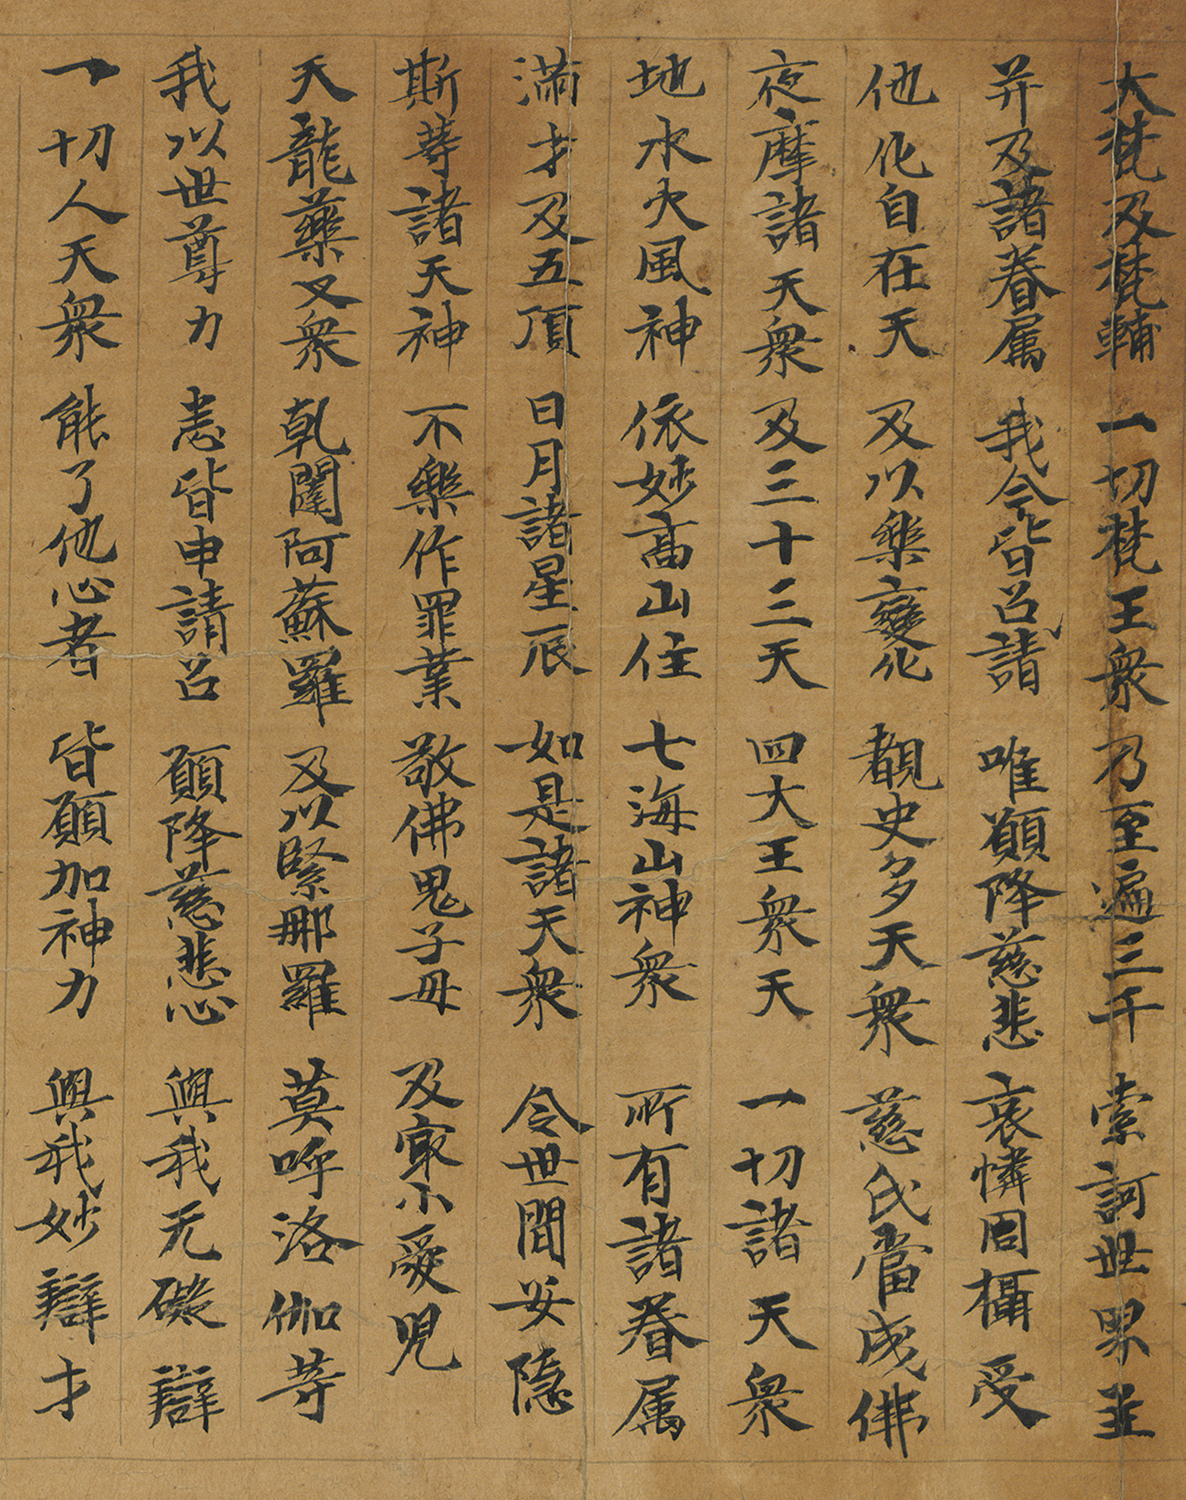 大梵及梵輔 一切梵王衆 乃至遍三千 索訶世界主
并及諸眷属 我今皆召請 唯願降慈悲 哀憐周攝受
他化自在天 及以樂變化 覩史多天衆 慈氏當成佛
夜摩諸天衆 及三十三天 四大王衆天 一切諸天衆
地水火風神 依妙高山住 七海山神衆 所有諸眷属
滿才及五頂 日月諸星辰 如是諸天衆 令世間安隱
斯等諸天神 不樂作罪業 敬佛鬼子母 及㝡小愛児
天龍藥叉衆 乹闥阿蘇羅 及以緊那羅 莫呼洛伽等
我以世尊力 悉皆申請召 願降慈悲心 與我无礙辯
一切人天衆 能了他心者 皆願加神力 與我妙辯才